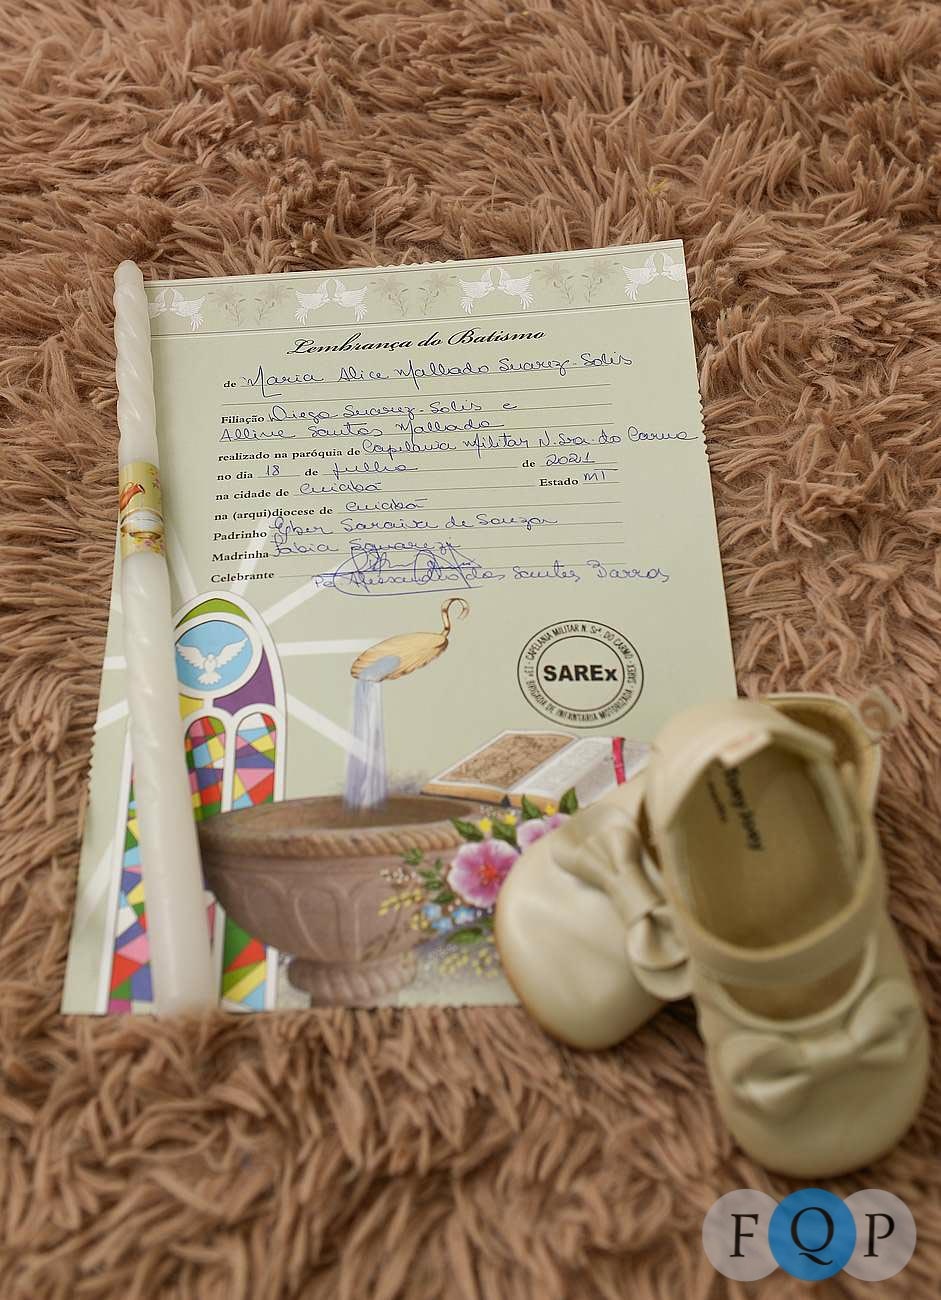 Lembrança do Batismo
de Maria Alice Malhado Suarez-Solis
Filiação Diego Suarez-Solis e
Alline Santos Malhado
realizado na paróquia de Capelania Militar N. Sra. do Carmo
no dia 18 de Julho de 2021
na cidade de Cuiabá Estado MT
na (arqui)diocese de Cuiabá
Padrinho Eber Saraiva de Souza
Madrinha Fabia Squarezi
Celebrante Pe Alessandro dos Santos Barros
CAPELANIA MILITAR Nª Srª DO CARMO
SAREx
BRIGADA DE INFANTARIA MOTORIZADA
F Q P